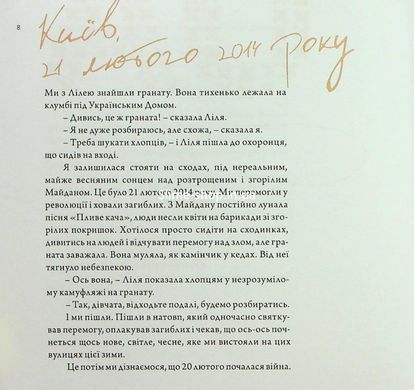 8
Київ,
21 лютого 2014 року
Ми з Лілею знайшли гранату. Вона тихенько лежала на
клумбі під Українським Домом.
– Дивись, це ж граната! – сказала Ліля.
– Я не дуже розбираюсь, але схожа, – сказала я.
– Треба шукати хлопців, – і Ліля пішла до охоронця,
що сидів на вході.
Я залишилася стояти на сходах, під нереальним,
майже весняним сонцем над розтрощеним і згорілим
Майданом. Це було 21 лютого 2014 року. Ми перемогли у
революції і ховали загиблих. З Майдану постійно лунала
пісня «Пливе кача», люди несли квіти на барикади зі зго-
рілих покришок. Хотілося просто сидіти на сходинках,
дивитись на людей і відчувати перемогу над злом, але гра-
ната заважала. Вона муляла, як камінчик у кедах. Від неї
тягнуло небезпекою.
– Ось вона, – Ліля показала хлопцям у незрозуміло-
му камуфляжі на гранату.
– Так, дівчата, відходьте подалі, будемо розбиратись.
І ми пішли. Пішли в натовп, який одночасно святку-
вав перемогу, оплакував загиблих і чекав, що ось-ось поч-
неться щось нове, світле, чесне, яке ми вистояли на цих
вулицях цієї зими.
Це потім ми дізнаємося, що 20 лютого почалася війна.